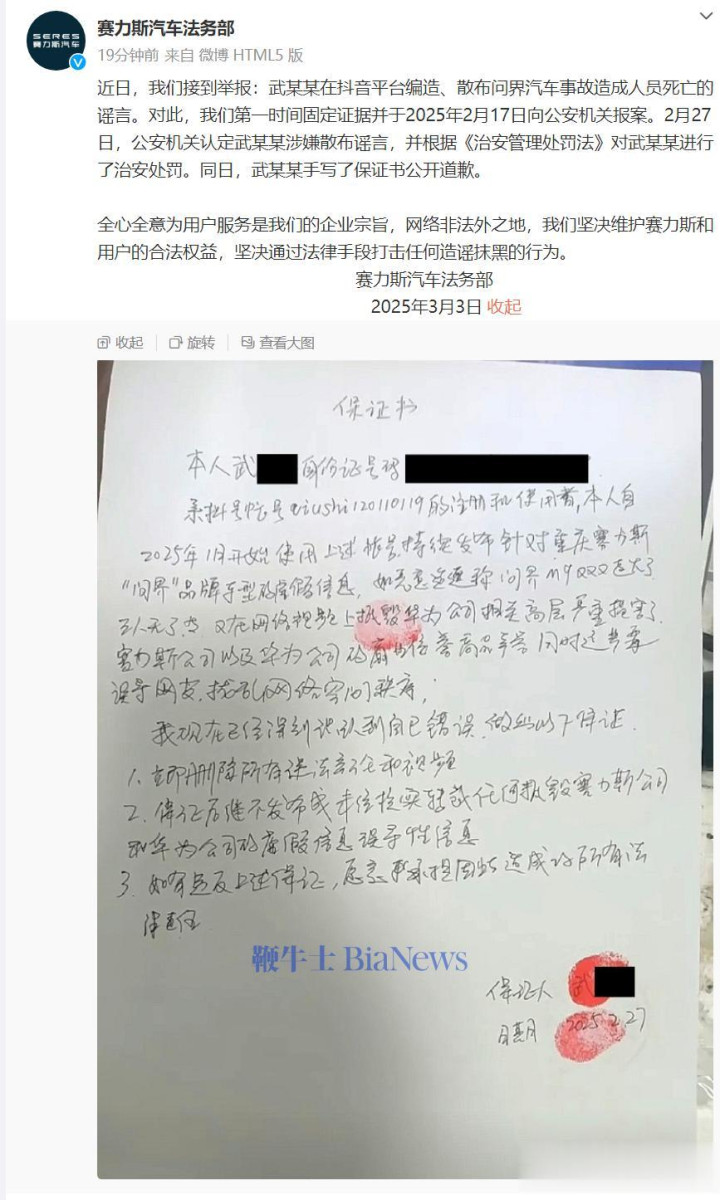 SERES
赛力斯汽车
赛力斯汽车法务部
19分钟前 来自 微博 HTML5 版
近日，我们接到举报：武某某在抖音平台编造、散布问界汽车事故造成人员死亡的
谣言。对此，我们第一时间固定证据并于2025年2月17日向公安机关报案。2月27
日，公安机关认定武某某涉嫌散布谣言，并根据《治安管理处罚法》对武某某进行
了治安处罚。同日，武某某手写了保证书公开道歉。
全心全意为用户服务是我们的企业宗旨，网络非法外之地，我们坚决维护赛力斯和
用户的合法权益，坚决通过法律手段打击任何造谣抹黑的行为。
赛力斯汽车法务部
2025年3月3日 收起
收起 旋转 查看大图
保证书
本人武 身份证号码
系抖号帐号 120110119的注册和使用者,本人自
2025年1月开始使用上述帐号持续发布针对重庆赛力斯
“问界”品牌车型的虚假信息,如恶意造谣称问界M9
三人死了,又在网络视频上抵毁华为公司相关高层严重损害了
赛力斯公司以及华为公司的 商品声誉 同时这些
误导网友,扰乱网络空间秩序;
我现在已经深刻认识到自己错误,做出以下保证.
1、立即删除所有违法言论和视频
2、保证后继不发布或 任何抵毁赛力斯公司
和华为公司的虚假信息误导性信息
3、如有违反上述保证,愿意承担因此造成的所有法
律责任
鞭牛士 BiaNews
保证人 武
日期 2025.2.27